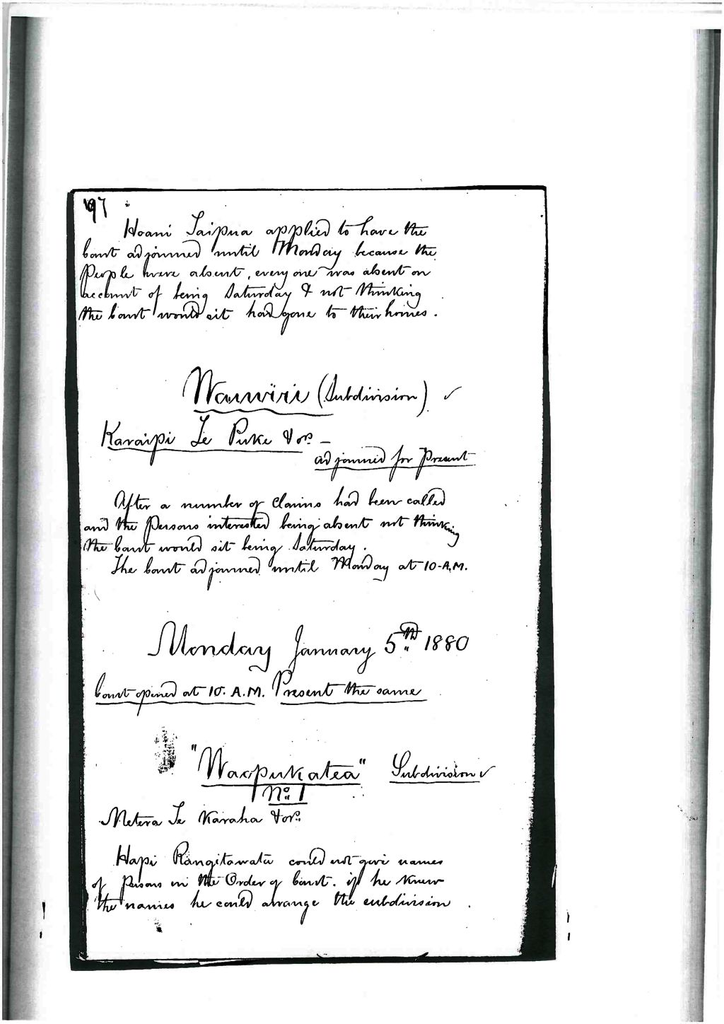 97
Hoani Taipua applied to have the
Court adjourned until Monday because the
People were absent, every one was absent on
account of being Saturday & not thinking
the Court would sit had gone to their homes.
Waiwiri (Subdivision)
Karaipi Te Puke & ors
adjourned for Present
After a number of Claims had been called
and the Persons interested being absent not thinking
the Court would sit being Saturday.
The Court adjourned until Monday at 10-A.M.
Monday January 5th 1880
Court opened at 10. A.M. Present the same
"Waopukatea" Subdivision
No. 1
Metera Te Karaha & ors
Hapi Rangitawatu could not give names
of Persons in the Order of Court. if he knew
the names he could arrange the subdivision.